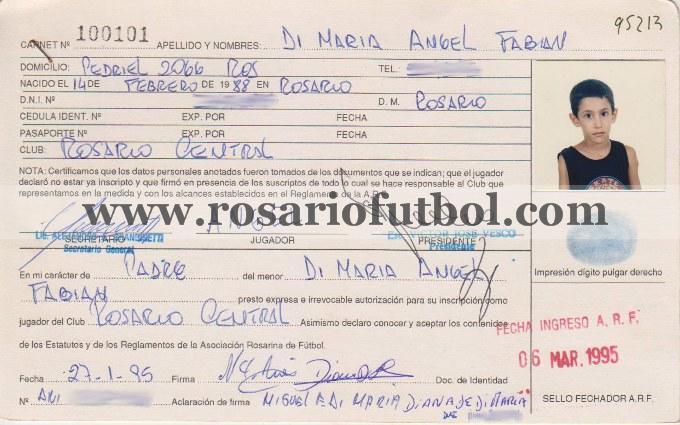 95213
CARNET Nº 100101 APELLIDO Y NOMBRES: DI MARIA ANGEL FABIAN
DOMICILIO: PEDRIEL 2066 ROS TEL.:
NACIDO EL 14 DE FEBRERO DE 1988 EN ROSARIO
D.N.I. Nº D. M. ROSARIO
CEDULA IDENT. Nº EXP. POR FECHA
PASAPORTE Nº EXP. POR FECHA
CLUB: ROSARIO CENTRAL
NOTA: Certificamos que los datos personales anotados fueron tomados de los documentos que se indican; que el jugador
declaró no estar ya inscripto y que firmó en presencia de los suscriptos de todo lo cual se hace responsable al Club que
representamos en la medida y con los alcances establecidos en el Reglamento de la A.R.F.
www.rosariofutbol.com
VICTOR JOSE VESCO
SECRETARIO JUGADOR PRESIDENTE
Secretario General Presidente
En mi carácter de PADRE del menor DI MARIA ANGEL
Impresión dígito pulgar derecho
FABIAN presto expresa e irrevocable autorización para su inscripción como
jugador del Club ROSARIO CENTRAL Asimismo declaro conocer y aceptar los contenidos
de los Estatutos y de los Reglamentos de la Asociación Rosarina de Fútbol.
FECHA INGRESO A. R. F.
06 MAR. 1995
Fecha 27-1-95 Firma Doc. de Identidad
Nº DNI Aclaración de firma MIGUEL DI MARIA DIANA DE DI MARIA
SELLO FECHADOR A.R.F.